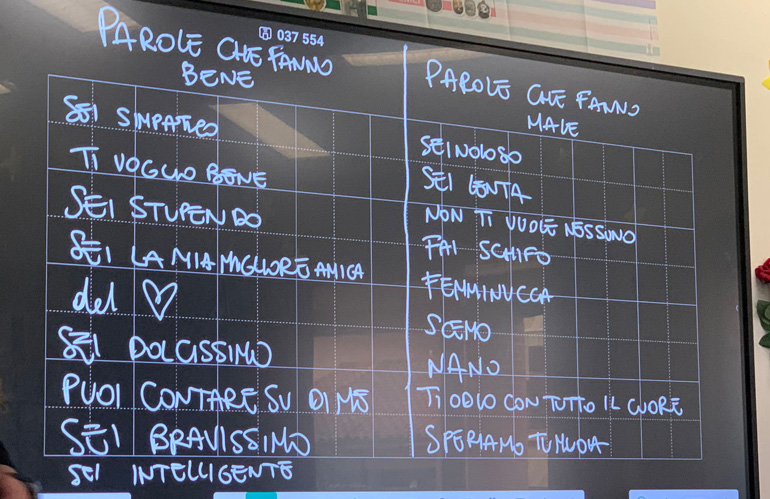 037 554
PAROLE CHE FANNO
BENE
SEI SIMPATICO
TI VOGLIO BENE
SEI STUPENDO
SEI LA MIA MIGLIORE AMICA
del ♡
SEI DOLCISSIMO
PUOI CONTARE SU DI ME
SEI BRAVISSIMO
SEI INTELLIGENTE
PAROLE CHE FANNO
MALE
SEI NOIOSO
SEI LENTA
NON TI VUOLE NESSUNO
FAI SCHIFO
FEMMINUCCA
SCEMO
NANO
TI ODIO CON TUTTO IL CUORE
SPERIAMO TU MUOIA